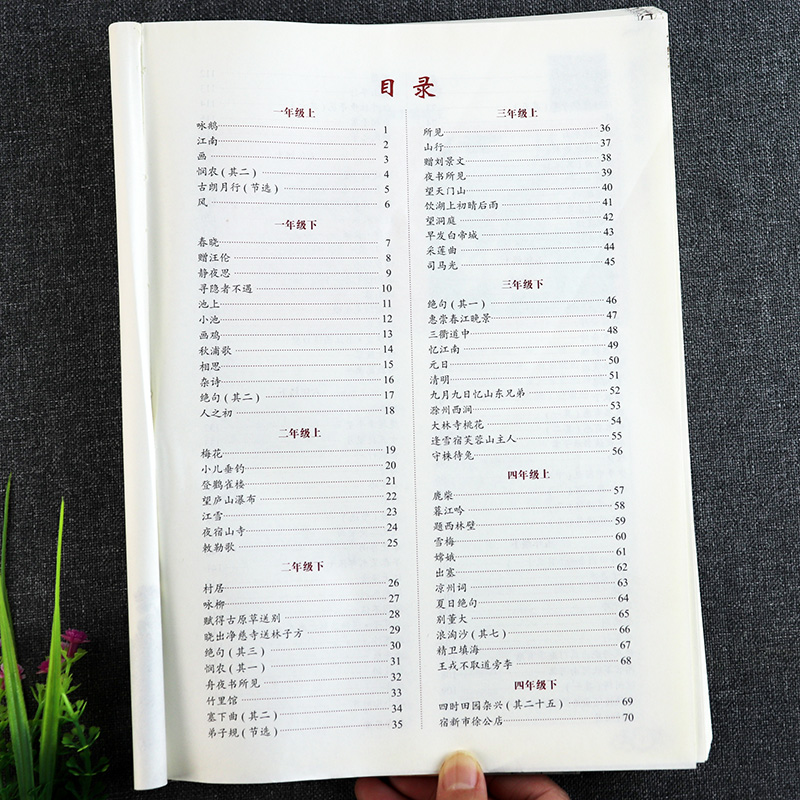 目 录
一年级上
咏鹅 1
江南 2
画 3
悯农(其二) 4
古朗月行(节选) 5
风 6
一年级下
春晓 7
赠汪伦 8
静夜思 9
寻隐者不遇 10
池上 11
小池 12
画鸡 13
秋浦歌 14
相思 15
杂诗 16
绝句(其二) 17
人之初 18
二年级上
梅花 19
小儿垂钓 20
登鹳雀楼 21
望庐山瀑布 22
江雪 23
夜宿山寺 24
敕勒歌 25
二年级下
村居 26
咏柳 27
赋得古原草送别 28
晓出净慈寺送林子方 29
绝句(其三) 30
悯农(其一) 31
舟夜书所见 32
竹里馆 33
塞下曲(其二) 34
弟子规(节选) 35
三年级上
所见 36
山行 37
赠刘景文 38
夜书所见 39
望天门山 40
饮湖上初晴后雨 41
望洞庭 42
早发白帝城 43
采莲曲 44
司马光 45
三年级下
绝句(其一) 46
惠崇春江晚景 47
三衢道中 48
忆江南 49
元日 50
清明 51
九月九日忆山东兄弟 52
滁州西涧 53
大林寺桃花 54
逢雪宿芙蓉山主人 55
守株待兔 56
四年级上
鹿柴 57
暮江吟 58
题西林壁 59
雪梅 60
嫦娥 61
出塞 62
凉州词 63
夏日绝句 64
别董大 65
浪淘沙(其七) 66
精卫填海 67
王戎不取道旁李 68
四年级下
四时田园杂兴(其二十五) 69
宿新市徐公店 70